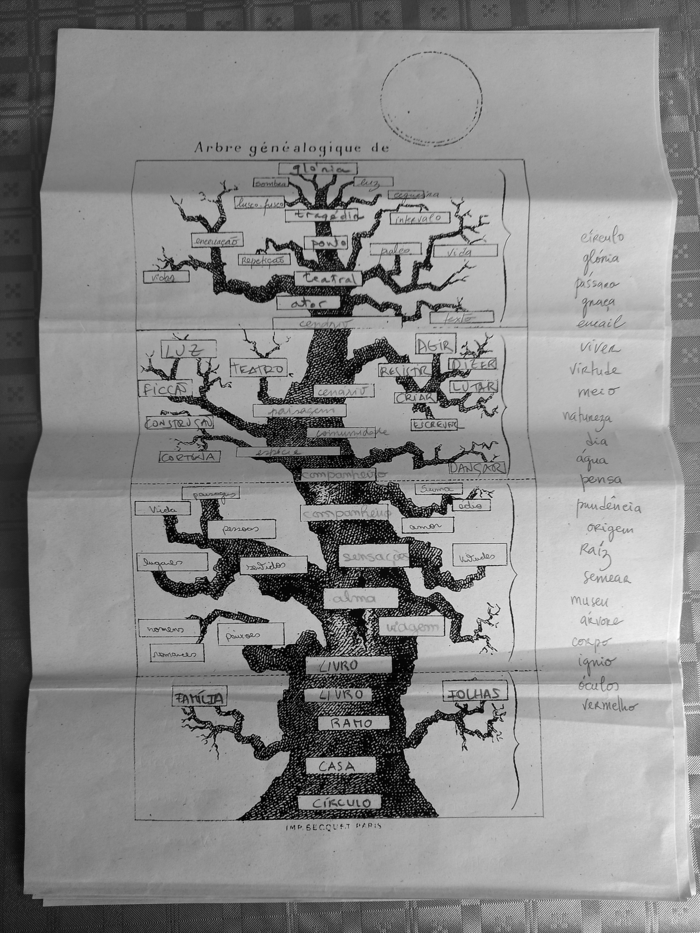 Arbre généalogique de
glória
sombra
luz
lusco-fusco
tragédia
intervalo
encenação
ponto
palco
vida
Repetição
vida
teatral
ator
texto
cenário
LUZ
AGIR
TEATRO
RESISTIR
DIZER
FICÇÃO
cenário
CRIAR
LUTAR
paisagem
CONSTRUÇÃO
comunidade
ESCREVER
CORTINA
espécie
DANÇAR
companheiro
paisagens
Vida
ódio
companheiro
pessoas
amor
lugares
sentidos
sensações
Virtudes
alma
homens
paixões
viagem
romances
LIVRO
FAMÍLIA
LIVRO
FOLHAS
RAMO
CASA
CÍRCULO
IMP. BECQUET PARIS
círculo
glória
pássaro
graça
email
viver
virtude
meio
natureza
dia
água
pensa
prudência
origem
Raíz
semear
museu
árvore
corpo
ígnio
óculos
vermelho